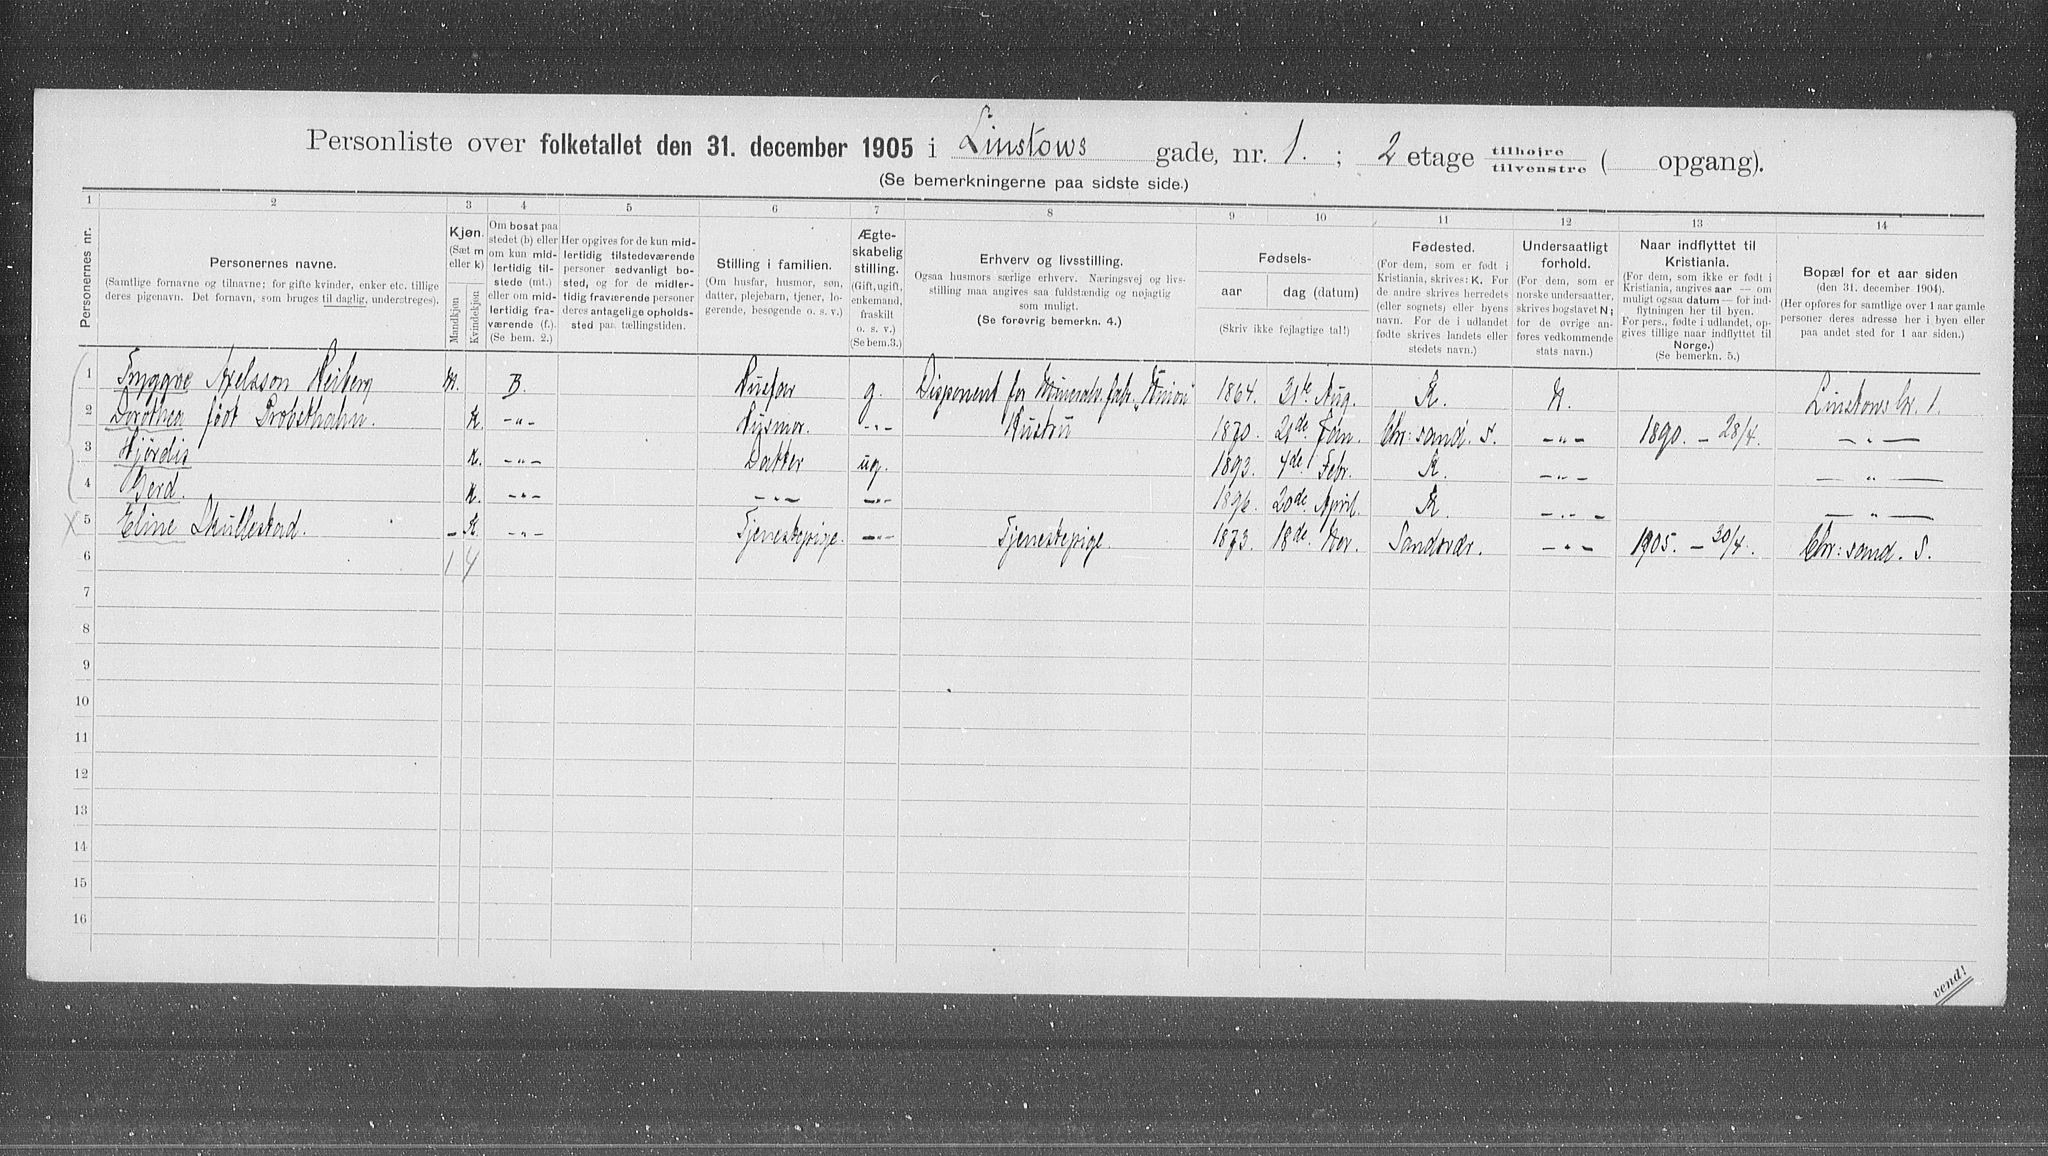 Personliste over folketallet den 31. december 1905 i Linstows gade, nr. 1. ; 2 etage tilhøjre tilvenstre ( opgang).
(Se bemerkningerne paa sidste side.)
1 2 3 4 5 6 7 8 9 10 11 12 13 14
Personernes nr.
Personernes navne.
(Samtlige fornavne og tilnavne; for gifte kvinder, enker etc. tillige
deres pigenavn. Det fornavn, som bruges til daglig, understreges).
Kjøn.
(Sæt m
eller k)
Mandkjøn
Kvindekjøn
Om bosat paa
stedet (b) eller
om kun mid-
lertidig til-
stede (mt.)
eller om mid-
lertidig fra-
værende (f.).
(Se bem. 2.)
Her opgives for de kun mid-
lertidig tilstedeværende
personer sedvanligt bo-
sted, og for de midler-
tidig fraværende personer
deres antagelige opholds-
sted paa tællingstiden.
Stilling i familien.
(Om husfar, husmor, søn,
datter, plejebarn, tjener, lo-
gerende, besøgende o. s. v.)
Ægte-
skabelig
stilling.
(Gift, ugift,
enkemand,
fraskilt
o. s. v.)
(Se bem.3.)
Erhverv og livsstilling.
Ogsaa husmors særlige erhverv. Næringsvej og livs-
stilling maa angives saa fuldstændig og nøjagtig
som muligt.
(Se forøvrig bemerkn. 4.)
Fødsels-
aar
dag (datum)
(Skriv ikke fejlagtige tal!)
Fødested.
(For dem, som er født i
Kristiania, skrives: K. For
de andre skrives herredets
(eller sognets) eller byens
navn. For de i udlandet
fødte skrives landets eller
stedets navn.)
Undersaatligt
forhold.
(For dem, som er
norske undersaatter,
skrives bogstavet N;
for de øvrige an-
føres vedkommende
stats navn.)
Naar indflyttet til
Kristiania.
(For dem, som ikke er født i
Kristiania, angives aar — om
muligt ogsaa datum — for ind-
flytningen her til byen.
For pers., fødte i udlandet, op-
gives tillige naar indflyttet til
Norge.)
(Se bemerkn. 5.)
Bopæl for et aar siden
(den 31. december 1904).
(Her opføres for samtlige over 1 aar gamle
personer deres adresse her i byen eller
paa andet sted for 1 aar siden.)
1 Tryggve Axelsson Heiberg m. B. Husfar g. Disponent for Mineralv.fabr. "Union" 1864. 21de Aug. K. N. Linstows G. 1.
2 Dorothea født Probsthahn. K. -"- Husmor. -"- Hustru 1870. 21de Jan. Chr:sand. S. -"- 1890. - 28/4. -"-
3 Hjørdis K. -"- Datter ug. 1893. 4de Febr. K. -"- -"-
4 Gerd. K. -"- -"- -"- 1896. 20de April. K. -"- -"-
X 5 Eline Skullestad. - K. -"- Tjenestepige. -"- Tjenestepige. 1873. 18de Nov. Sandsvær. -"- 1905. - 30/4. Chr:sand. S.
6 1 4
7
8
9
10
11
12
13
14
15
16
vend!